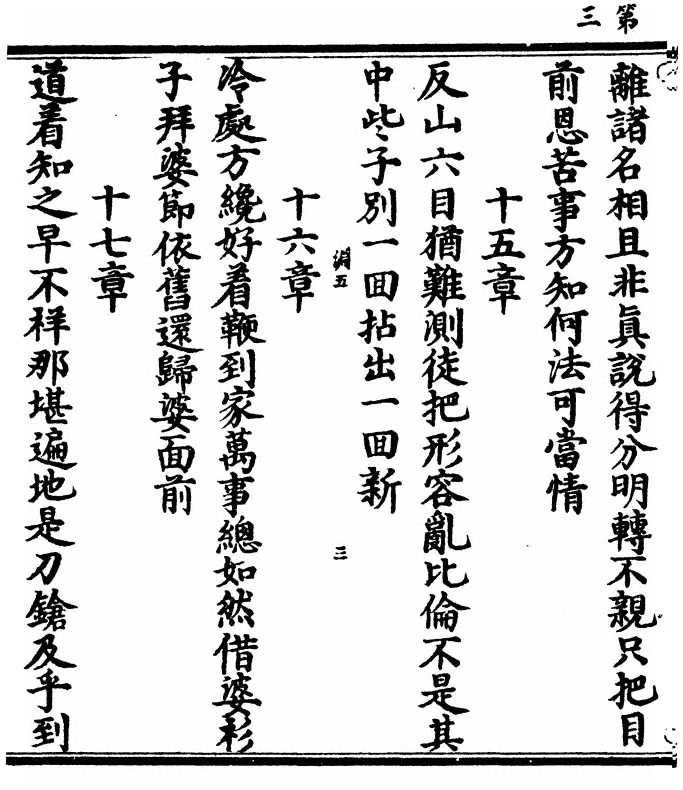 第三
離諸名相且非眞說得分明轉不親只把目
前恩苦事方知何法可當情
十五章
反山六目猶難測徒把形容亂比倫不是其
中些子別一回拈出一回新
淵五
三
十六章
冷處方纔好着鞭到家萬事總如然借婆衫
子拜婆節依舊還歸婆面前
十七章
道着知之早不祥那堪遍地是刀鎗及乎到